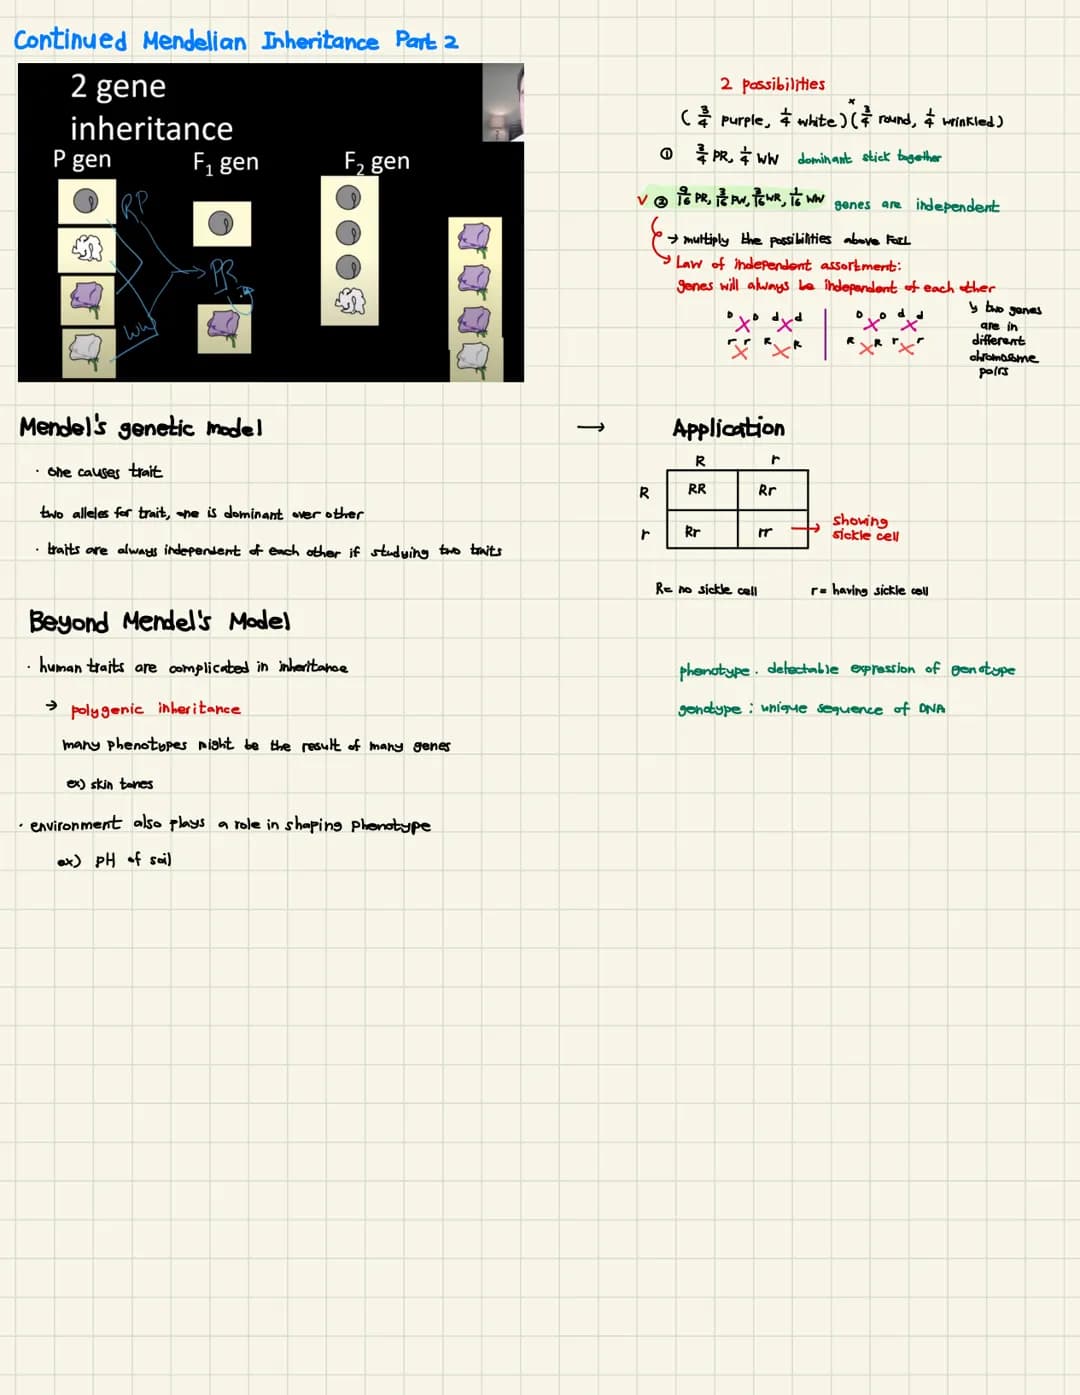 Continued Mendelian Inheritance Part 2
2 gene
inheritance
P gen
F₁ gen
F₂ gen
RP
PR
WW
2 possibilities
x
( 3/4 purple, 1/4 white)( 3/4 round, 1/4 wrinkled)
① 3/4 PR, 1/4 WW dominant stick together
✓ ② 9/16 PR, 3/16 PW, 3/16 WR, 1/16 WW genes are independent
→ multiply the possibilities above FOIL
Law of independent assortment:
genes will always be independent of each other
↳ two genes
are in
different
chromosome
pairs
D D d d
r r R R
D D d d
R R r r
Mendel's genetic model
→ Application
· one causes trait
two alleles for trait, one is dominant over other
· traits are always independent of each other if studying two traits
R r
R RR Rr
r Rr rr → showing
sickle cell
R= no sickle cell r= having sickle cell
Beyond Mendel's Model
· human traits are complicated in inheritance
→ polygenic inheritance
many phenotypes might be the result of many genes
ex) skin tones
· environment also plays a role in shaping phenotype
ex) pH of soil
phenotype. detectable expression of genotype
genotype: unique sequence of DNA